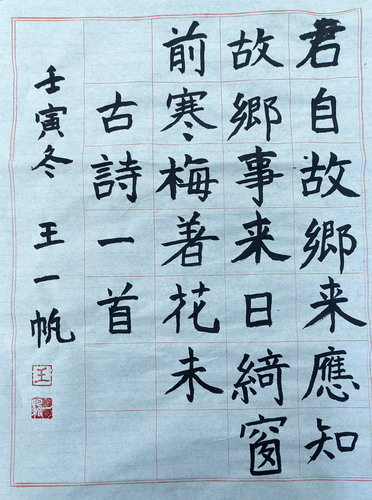 君自故鄉来應知
故鄉事来日綺窗
前寒梅着花未
古詩一首
壬寅冬 王一帆
王